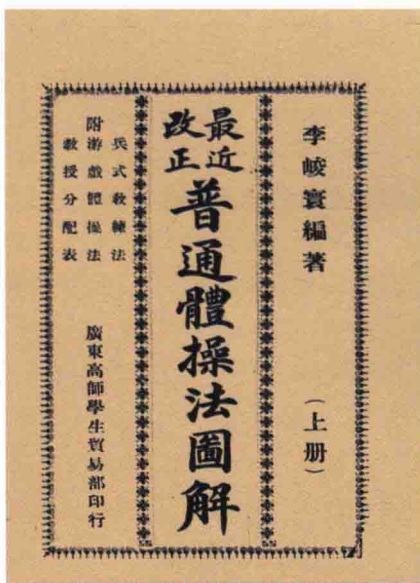 李峻寰編著
（上册）
最近
改正
普通體操法圖解
兵式教練法
附游戲體操法
教授分配表
廣東高師學生貿易部印行